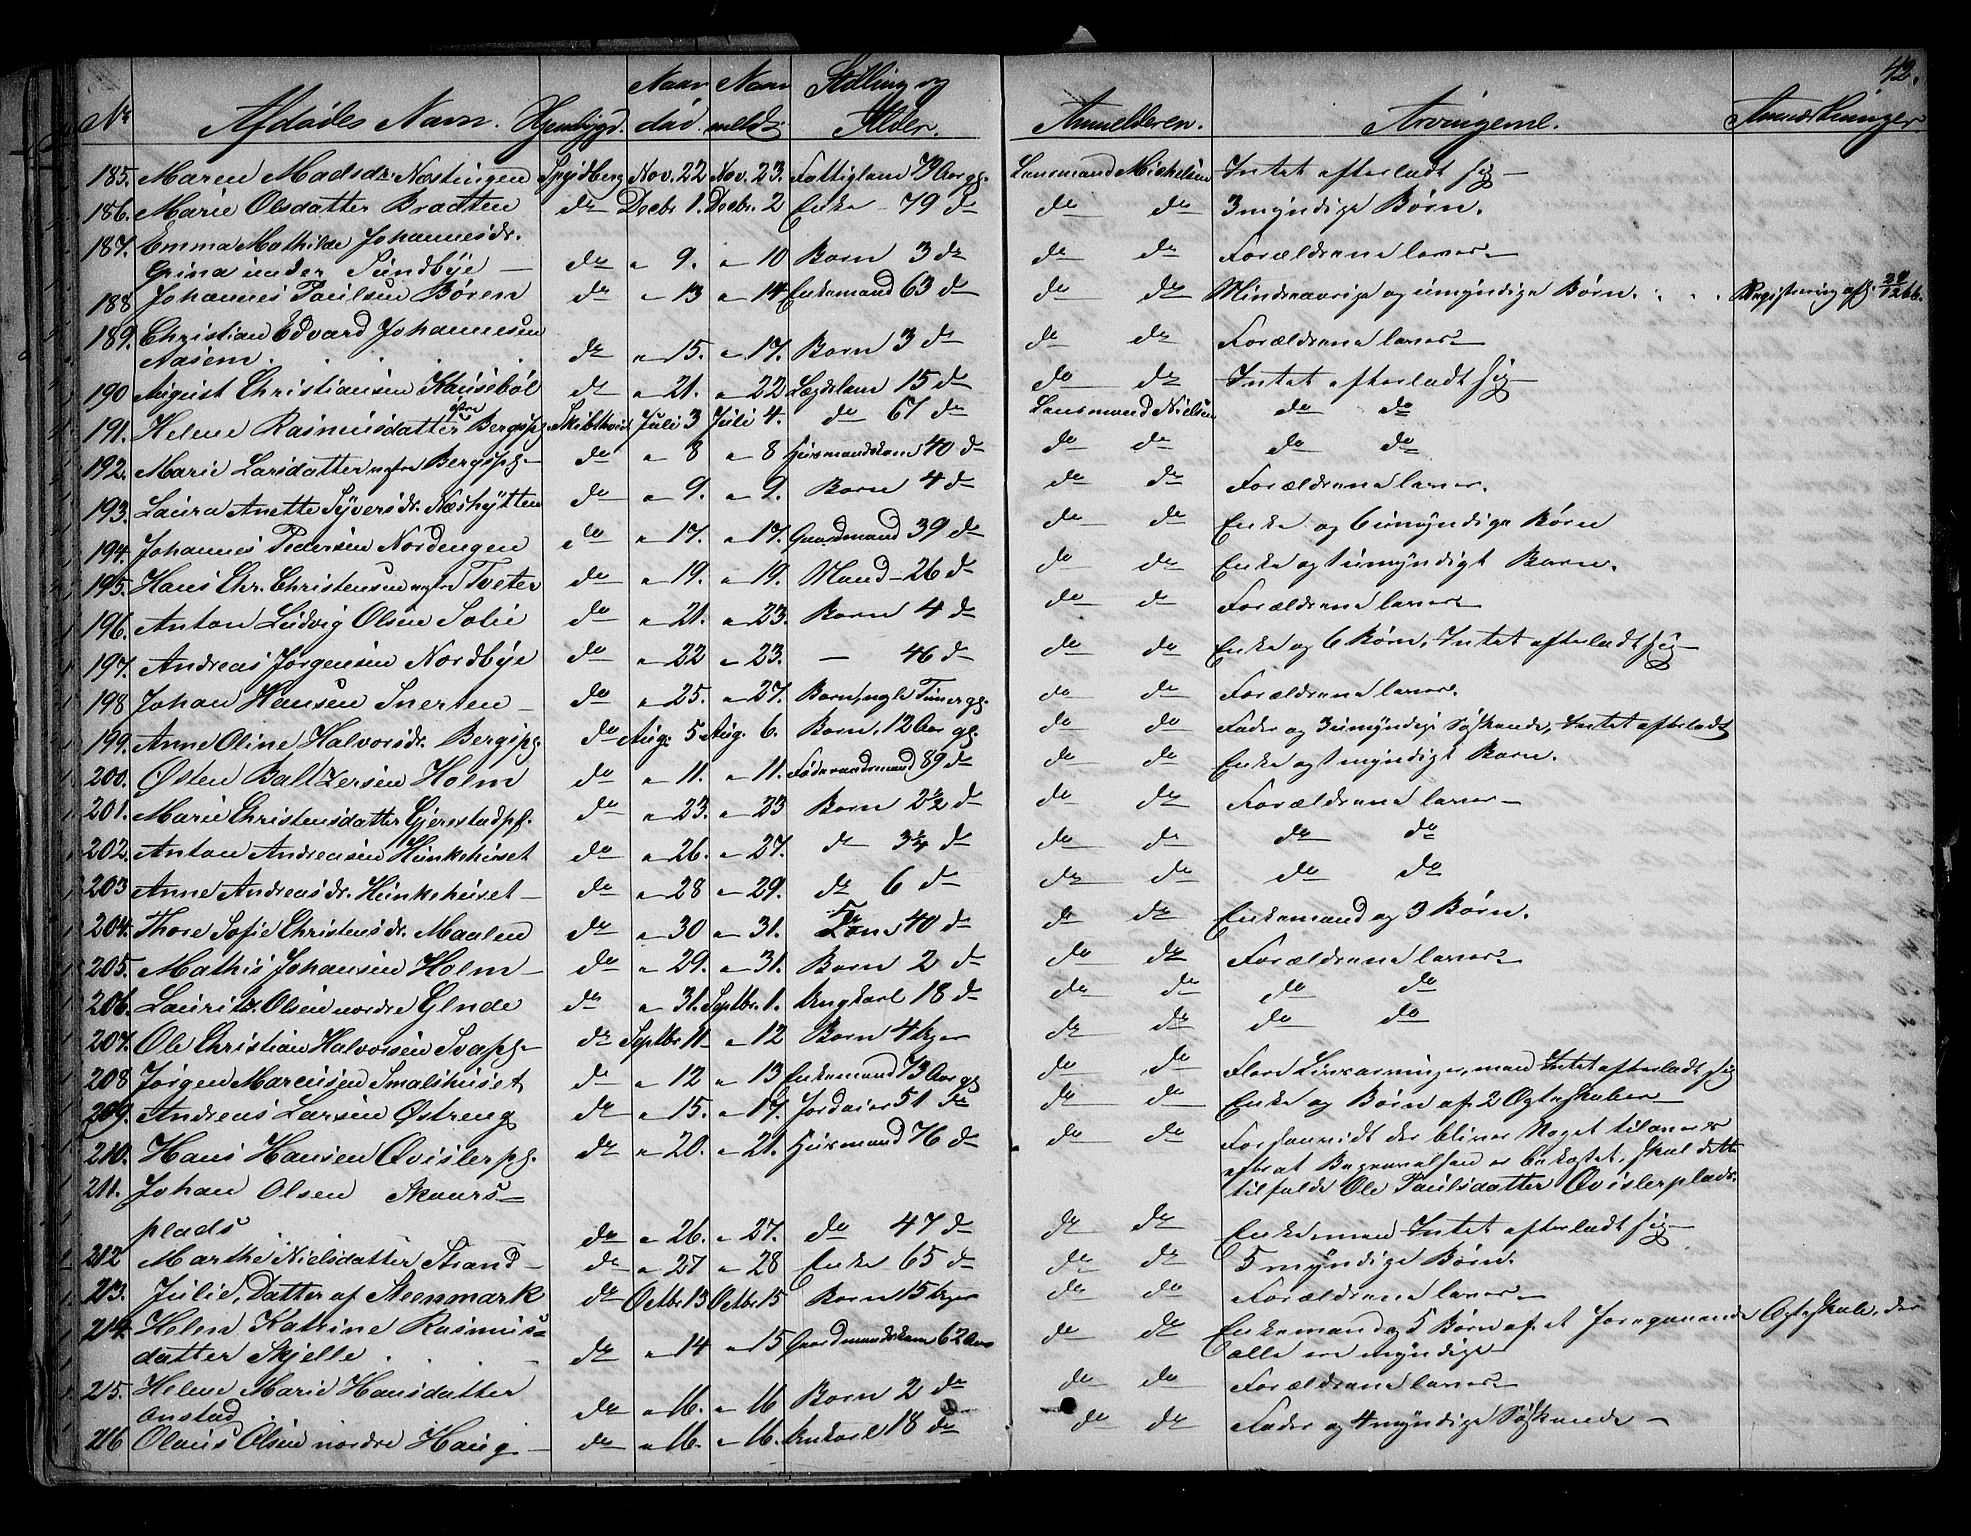 42.
No Afdødes Navn. Hjembygd. Naar død. Naar meldt. Stilling og Alder. Anmelderen. Arvingerne. Anmærkninger
185. Maren Madsdr. Næstingen Spydberg Nov. 22 Nov. 23. Fattiglem 73 Aar gl. Lensmand Michelsen Intet efterladt sig
186. Marie Olsdatter Bradten do Decbr 1. Decbr. 2 Enke 79 do do do 3 myndige Børn.
187. Emma Mathilde Johannesdr.
Grina under Sundbye do " 9. " 10 Barn 3 do do do Forældrene lever
188 Johannes Paulsen Børen do " 13 " 14 Enkemand 63 do do do Mindreaarige og umyndige Børn. Registrering afh.
189. Christian Edvard Johannesen
Nasem. do " 15. " 17. Barn 3 do do do Forældrene lever
190 August Christiansen Kausebøl do " 21. " 22 Lægdslem 15 do do do Intet efterladt sig
191. Helene Rasmusdatter østre Bergspg. Skibthvet Juli 3 Juli 4. do 67 do Lensmand Nielsen do do
192. Marie Larsdatter Bergspg. do " 8 " 8 Husmandskone 40 do do do do do
193. Laura Anette Syversdr. Næshytten do " 9. " 9. Barn 4 do do do Forældrene lever.
194. Johannes Pedersen Nordengen do " 17. " 17. Gaardmand 39 do do do Enke og 6 umyndige Børn
195. Hans Chr. Christensen Tveter do " 19. " 19. Mand 26 do do do Enke og 1 umyndigt Barn.
196. Anton Ludvig Olsen Solie do " 21. " 23. Barn 4 do do do Forældrene lever
197. Andreas Jørgensen Nordbye do " 22 " 23. — 46 do do do Enke og 6 Børn, Intet efterladt sig
198 Johan Hansen Snerten do " 25. " 27. Barn, nogle Timer gl. do do Forældrene lever.
199. Anne Oline Halvorsdr. Bergspg. do Aug. 5 Aug. 6. Barn, 12 Aar gl. do do Fader og 3 umyndige Søskende, Intet efterladt
200. Østen Baltzersen Holm do " 11. " 11. Føderaadsmand 89 do do do Enke og 1 myndigt Barn.
201. Marie Christensdatter Gjerestadpl. do " 23. " 23 Barn 2½ do do do Forældrene lever
202. Anton Andreasen Hunkehuset do " 26. " 27. do 3¼ do do do do do
203 Anne Andreasdr. Hunkehuset do " 28 " 29. do 6 do do do do do
204. Thore Sofie Christensdr. Maalen do " 30 " 31. 40 do do do Enkemand og 3 Børn.
205. Mathis Johansen Holm do " 29. " 31. Barn 2 do do do Forældrene lever
206. Lauritz Olsen nordre Glende do " 31. Septbr. 1. Ungkarl 18 do do do do do
207. Ole Christian Halvorsen Svapg. do Septbr. 11 " 12 Barn 4 Uger do do do do
208 Jørgen Marcusen Smalshuset do " 12 " 13 Enkemand 73 Aar gl do do Flere Livsarvinger, men Intet efterladt sig
209. Andreas Larsen Østreng do " 15. " 17. Jordeier 51 do do do Enke og Børn af 2 Ægteskaber
210. Hans Hansen Qvislerpg. do " 20. " 21. Husmand 76 do do do Forsaavidt der bliver Noget tilovers
efterat Begravelsen er bekostet, skal dette
tilfalde Ole Paulsdatter Qvislerplads.
211. Johan Olsen Skaurs-
plads do " 26. " 27. do 47 do do do Enkeman Intet efterladt sig
212 Marthe Nielsdatter Strand do " 27 " 28 Enke 65 do do do 5 myndige Børn.
213. Julie, Datter af Steenmark do Octbr 13 Octbr 15 Barn 15 Uger do do Forældrene lever
214. Helen Katrine Rasmus-
datter Skjelle do " 14 " 15 Gaardmandskone 62 Aar do do Enkemand og 5 Børn af et foregaaende Ægteskab, der
alle ere myndige
215. Helene Marie Hansdatter
Onstad do " 16. " 16 Barn 2 do do do Forældrene lever
216 Olaus Olsen nordre Haug do " 16. " 16. Unkarl 18 do do do Fader og 4 myndige Søskende